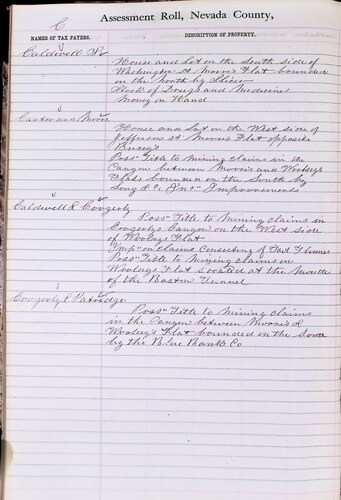 Assessment Roll, Nevada County,
C.
NAMES OF TAX PAYERS.
DESCRIPTION OF PROPERTY.
Caldwell Dr
House and Lot on the South side of
Washington St Moore's Flat bounded
on the North by
Stock of Drugs and Medicines
Money on Hand
Carter and Moore
House and Lot on the West side of
Jefferson St Moore's Flat opposite
Possn Title to Mining claims in the
Canyon between Moore's and Woolsey's
Flats bounded on the South by
Long & Co Improvements
Caldwell & Congerly
Possn Title to Mining claims in
Congerlys Canyon on the West side
of Woolsey's Flat
Impn on claims Consisting of Flumes
Possn Title to Mining claims in
Woolseys Flat located at the Mouth
of the Boston Tunnel
Congerly & Patridge
Possn Title to Mining claims
in the Canyon between Moore's &
Woolsey's Flat bounded on the South
by the Blue Bank Co